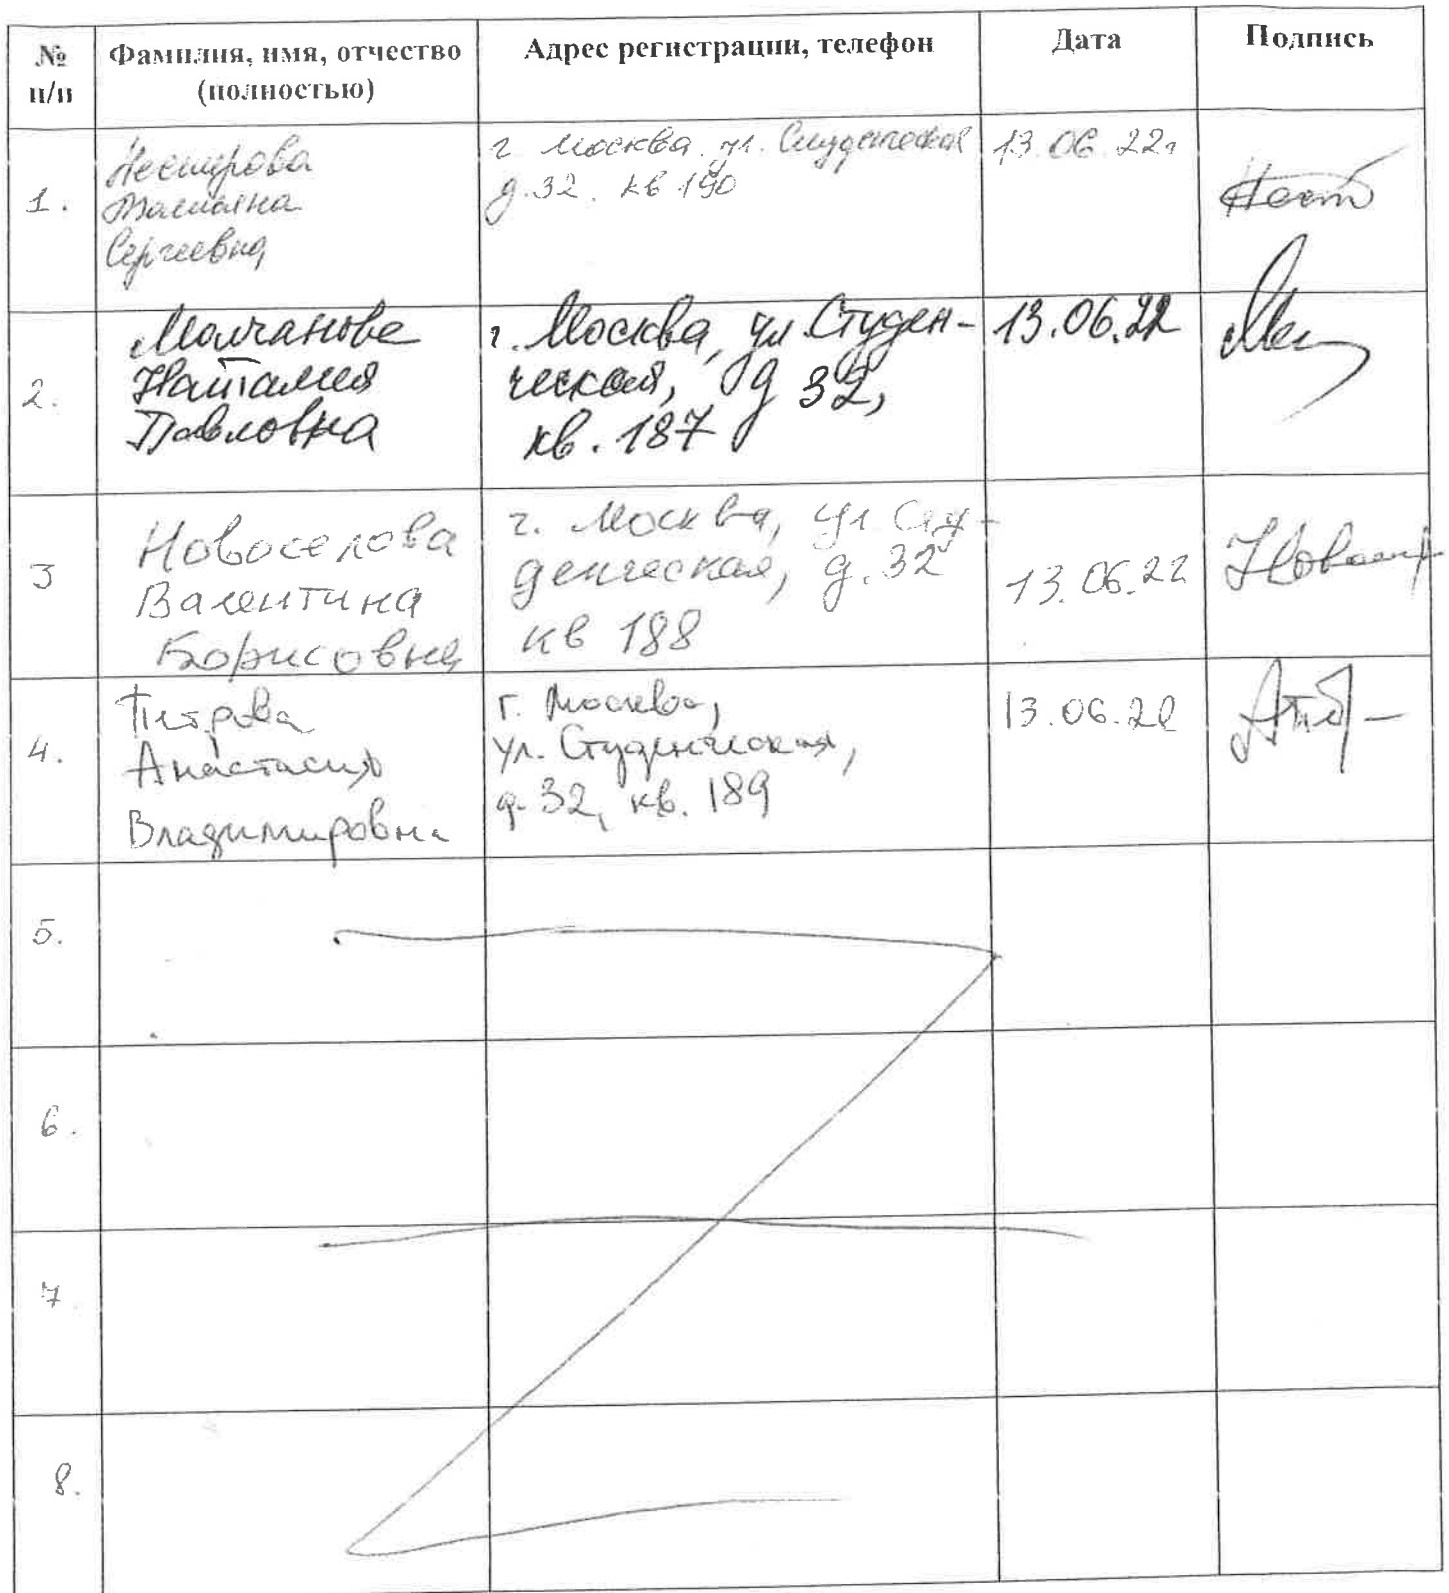 № п/п
Фамилия, имя, отчество
(полностью)
Адрес регистрации, телефон
Дата
Подпись
1.
Нестерова
Татьяна
Сергеевна
г Москва. ул. Студенческая
д.32. кв 190
13.06.22г
2.
Молчанова
Наталия
Павловна
г. Москва, ул Студен-
ческая, д 32,
кв. 187
13.06.22
3
Новоселова
Валентина
Борисовна
г. Москва, ул Сту-
денческая, д.32
кв 188
13.06.22
4.
Петрова
Анастасия
Владимировна
г. Москва,
ул. Студенческая,
д. 32, кв. 189
13.06.22
5.
6.
7
8.